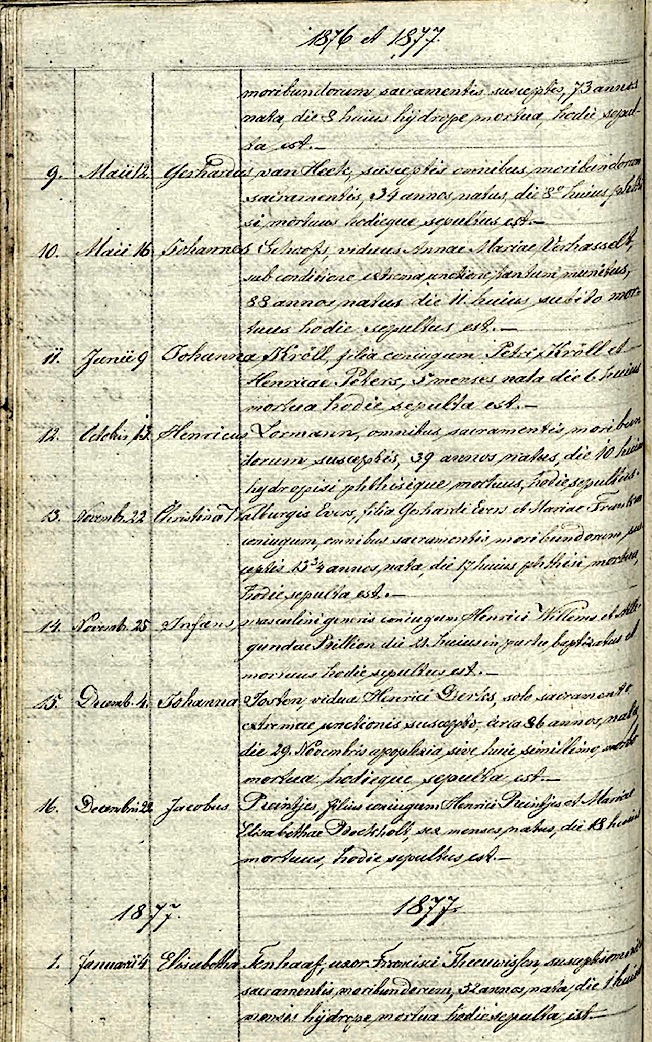 1876 et 1877.
moribundorum sacramentis susceptis, 73 annos
nata, die 8 huius hydrope mortua, hodie sepul-
ta est.—
9. Maii 12 Gerhardus van Heek, susceptis omnibus moribundorum
sacramentis, 34 annos natus, die 8º huius, phthi-
si, mortuus hodieque sepultus est.—
10. Maii 16 Johannes Schoofs, viduus Annae Mariae Verhasselt,
sub conditione extrema unctione tantum munitus,
88 annos natus die 11. huius subito mor-
tuus hodie sepultus est.—
11. Junii 9 Johanna Kröll filia coniugum Petri Kröll et
Henricae Peters, menses nata die 6 huius
mortua hodie sepulta est.—
12. Octobr. 13. Henricus Lormann, omnibus sacramentis moribun
dorum susceptis, 39 annos natus, die 10 huius
hydropisi phthisique mortuus, hodie sepultus.
13. Novembr. 22 Christina Walburgis Evers, filia Gerhardi Evers et Mariae
coniugum, omnibus sacramentis moribundorum sus
ceptis 13¾ annos, nata, die 17 huius phthisi mortua,
hodie sepulta est.—
14. Novemb. 25 Infans, masculini generis coniugum Henrici Willems et
gundae die 21. huius in partu baptizatus et
mortuus hodie sepultus est.—
15. Decemb. 4. Johanna Josten, vidua Henrici Derks, solo sacramento
extremae unctionis suscepto, circa 86 annos, nata,
die 29. Novembris apoplexia sive huic simillimo morbo
mortua hodieque sepulta est.—
16. Decembris 22 Jacobus Pruntjes filius coniugum Henrici Pruntjes et Mariae
Elisabethae Bockholt, sex menses natus, die 18 huius
mortuus, hodie sepultus est.—
1877. 1877.
1. Januarii 4 Elisabetha Tenhaaf, uxor Francisci Theeuwissen, susceptis omnibus
sacramentis, moribundorum, 32 annos, nata, die 1 huius
menses hydrope mortua hodie sepulta, est.—